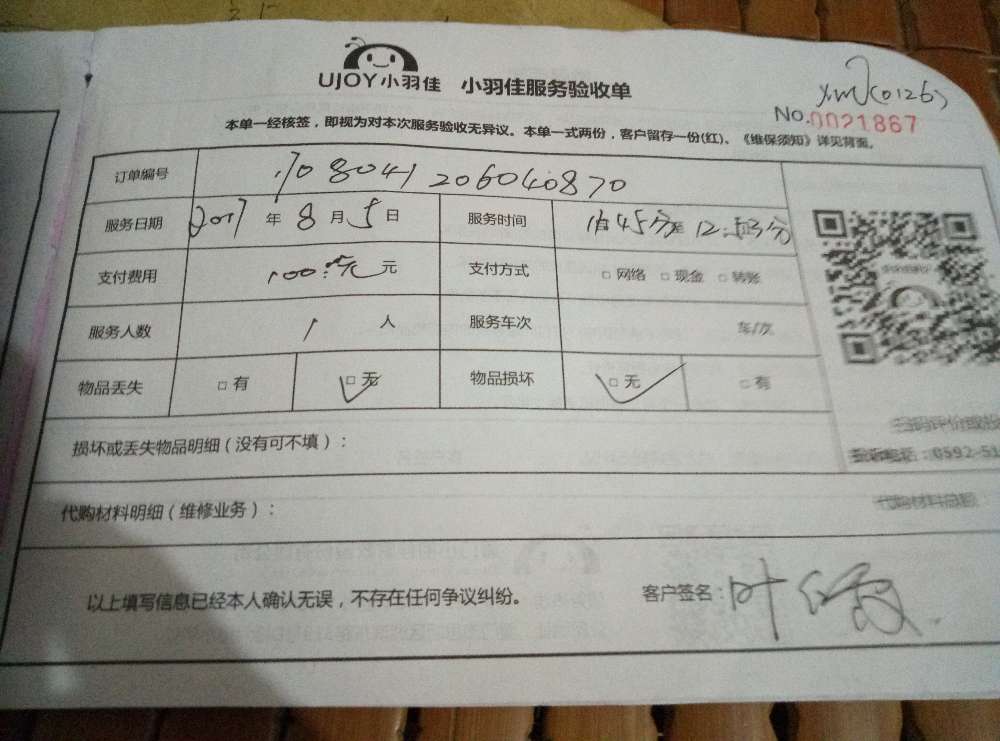 UJOY小羽佳 小羽佳服务验收单
xm(0126)
No.0021867
本单一经核签，即视为对本次服务验收无异议。本单一式两份，客户留存一份(红)、《维保须知》详见背面。
订单编号 1708041206040870
服务日期 2017年8月5日 服务时间 45分至12:53分
支付费用 100:元 元 支付方式 □网络 □现金 □转账
服务人数 1 人 服务车次 车/次
物品丢失 □有 □无 物品损坏 □无 □有
扫码评价或投
损坏或丢失物品明细（没有可不填）：
电话：0592-51
代购材料明细（维修业务）： 代购材料总额
以上填写信息已经本人确认无误，不存在任何争议纠纷。 客户签名：叶